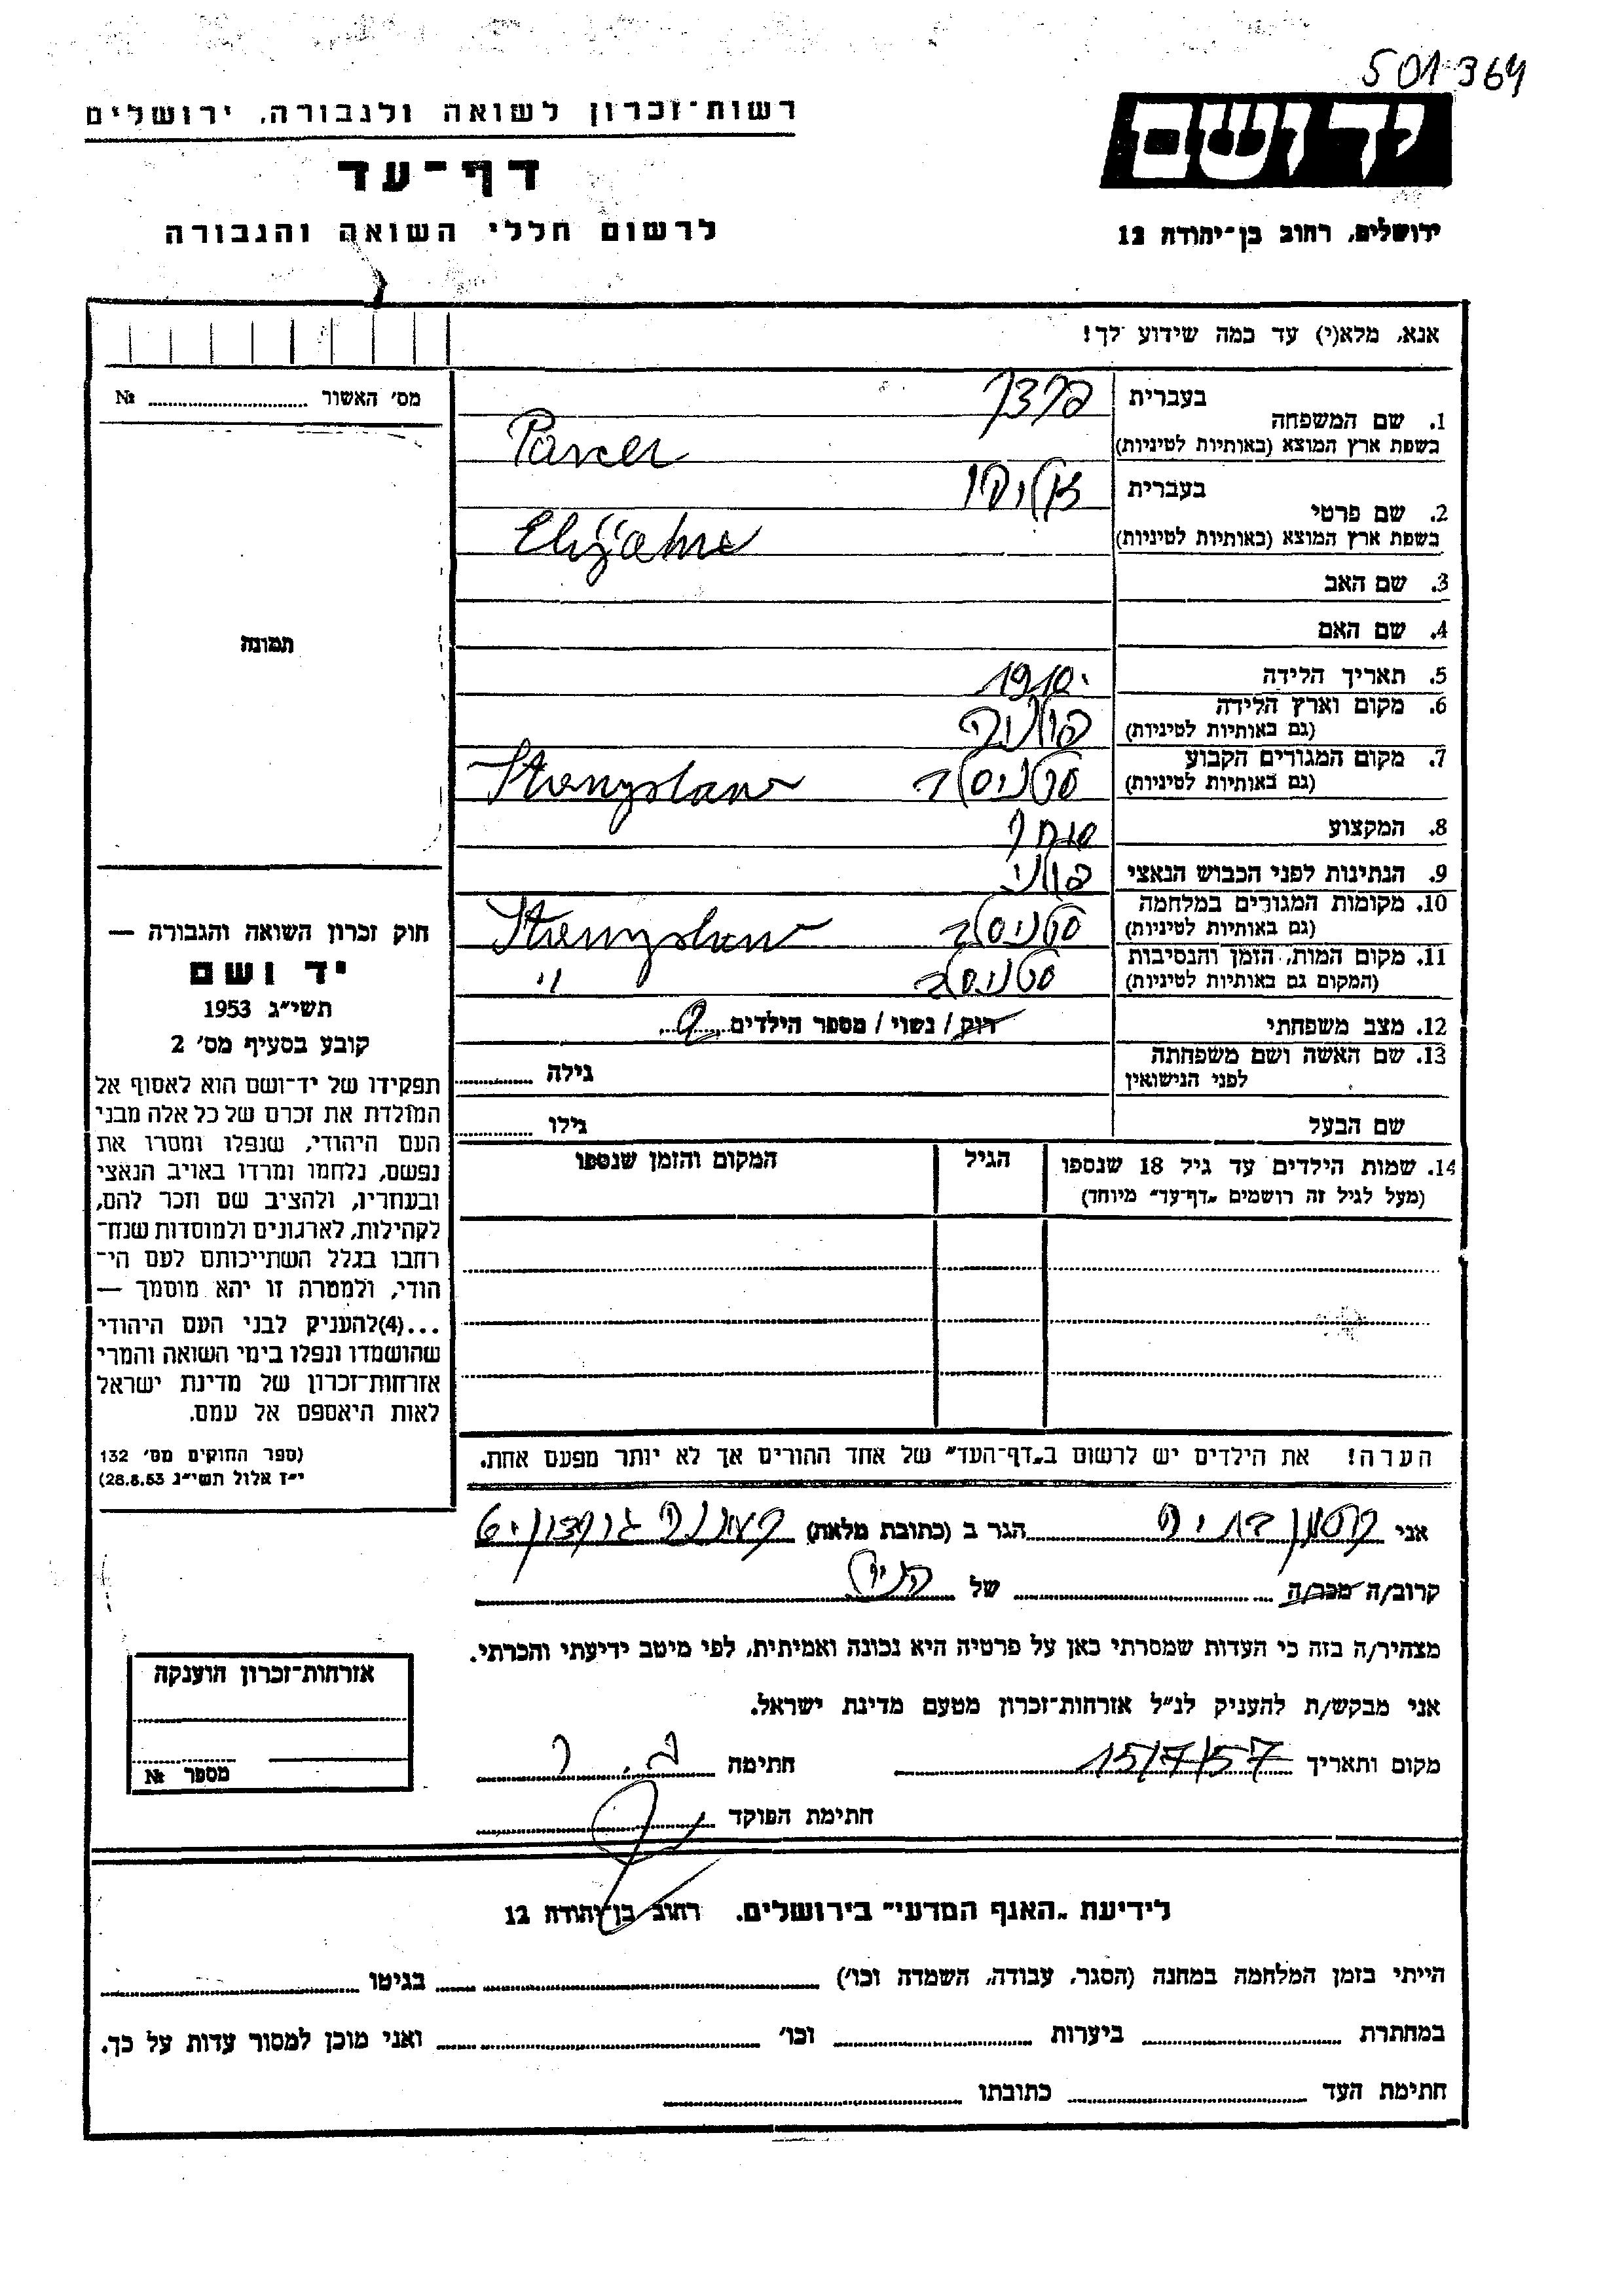 501364
רשות-זכרון לשואה ולגבורה, ירושלים
יד ושם
דף-עד
לרשום חללי השואה והגבורה
ירושלים, רחוב בן-יהודה 12
אנא, מלא(י) עד כמה שידוע לך!
מס' האשור № ........
1. שם המשפחה בעברית
בשפת ארץ המוצא (באותיות לטיניות) Parcer
2. שם פרטי בעברית אליהו
בשפת ארץ המוצא (באותיות לטיניות) Elijahu
3. שם האב
4. שם האם
5. תאריך הלידה 1910
6. מקום וארץ הלידה (גם באותיות לטיניות) פולניה
7. מקום המגורים הקבוע (גם באותיות לטיניות) סטניסלב
8. המקצוע סוחר
9. הנתינות לפני הכבוש הנאצי פולני
10. מקומות המגורים במלחמה (גם באותיות לטיניות) סטניסלב
11. מקום המות, הזמן והנסיבות (המקום גם באותיות לטיניות) סטניסלב
12. מצב משפחתי רוק / נשוי / מספר הילדים
13. שם האשה ושם משפחתה לפני הנישואין גילה ........
שם הבעל גילו ........
14. שמות הילדים עד גיל 18 שנספו הגיל המקום והזמן שנספו
(מעל לגיל זה רושמים „דף-עד" מיוחד)
הערה! את הילדים יש לרשום ב„דף-העד" של אחד ההורים אך לא יותר מפעם אחת.
תמונה
חוק זכרון השואה והגבורה —
יד ושם
תשי"ג 1953
קובע בסעיף מס' 2
תפקידו של יד-ושם הוא לאסוף אל
המולדת את זכרם של כל אלה מבני
העם היהודי, שנפלו ומסרו את
נפשם, נלחמו ומרדו באויב הנאצי
ובעוזריו, ולהציב שם וזכר להם,
לקהילות, לארגונים ולמוסדות שנח-
רבו בגלל השתייכותם לעם הי-
הודי, ולמטרה זו יהא מוסמך —
...(4)להעניק לבני העם היהודי
שהושמדו ונפלו בימי השואה והמרי
אזרחות-זכרון של מדינת ישראל
לאות היאספם אל עמם.
(ספר החוקים מס' 132
י"ז אלול תשי"ג 28.8.53)
אני הגר ב (כתובת מלאה)
קרוב/ה מכר/ה ........ של
מצהיר/ה בזה כי העדות שמסרתי כאן על פרטיה היא נכונה ואמיתית, לפי מיטב ידיעתי והכרתי.
אני מבקש/ת להעניק לנ"ל אזרחות-זכרון מטעם מדינת ישראל.
מקום ותאריך 15/7/57 חתימה
חתימת הפוקד
אזרחות-זכרון הוענקה
מספר №
לידיעת „האגף המדעי" בירושלים. רחוב בן-יהודה 12
הייתי בזמן המלחמה במחנה (הסגר, עבודה, השמדה וכו') ........ בגיטו ........
במחתרת ........ ביערות ........ וכו' ........ ואני מוכן למסור עדות על כך.
חתימת העד ........ כתובתו ........